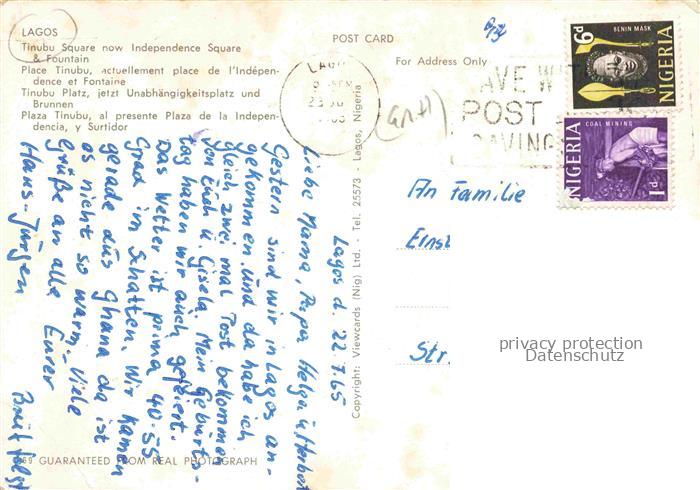 LAGOS
Tinubu Square now Independence Square
& Fountain
Place Tinubu, actuellement place de l'Indépen-
dence et Fontaine
Tinubu Platz, jetzt Unabhängigkeitsplatz und
Brunnen
Plaza Tinubu, al presente Plaza de la Indepen-
dencia, y Surtidor
POST CARD
For Address Only
LAGO
POST
SAVING
BENIN MASK
6d
NIGERIA
COAL MINING
NIGERIA
1d
Copyright: Viewcards (Nig) Ltd. - Tel. 25573 - Lagos, Nigeria
Lagos d. 22.7.65
Liebe Mama, Papa, Helga
Gestern sind wir in Lagos an-
gekommen und da habe ich
gleich zwei mal Post bekommen
von Euch u. Gisela. Mein Geburts-
tag haben wir auch gefeiert.
Das Wetter ist prima 40-55
Grad im Schatten. Wir kamen
gerade aus Ghana da ist
es nicht so warm. Viele
Grüße an alle Eurer
Hans-Jürgen
An Familie
Ernst
Str.
privacy protection
Datenschutz
GUARANTEED FROM REAL PHOTOGRAPH